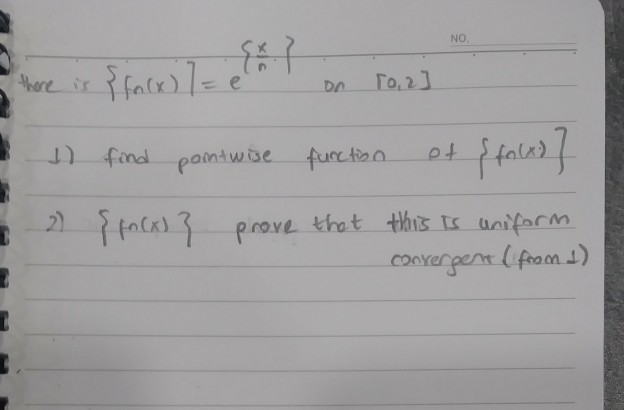 NO.
there is {fn(x)} = e^{x/n} on [0,2]
1) find pointwise function of {fn(x)}
2) {fn(x)} prove that this is uniform
convergent (from 1)